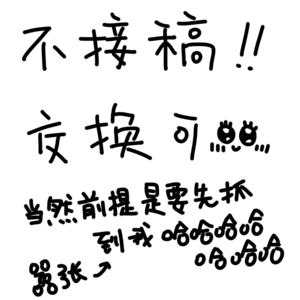 不接稿!!
交换可
当然前提是要先抓
到我哈哈哈哈
哈哈哈
嚣张↗